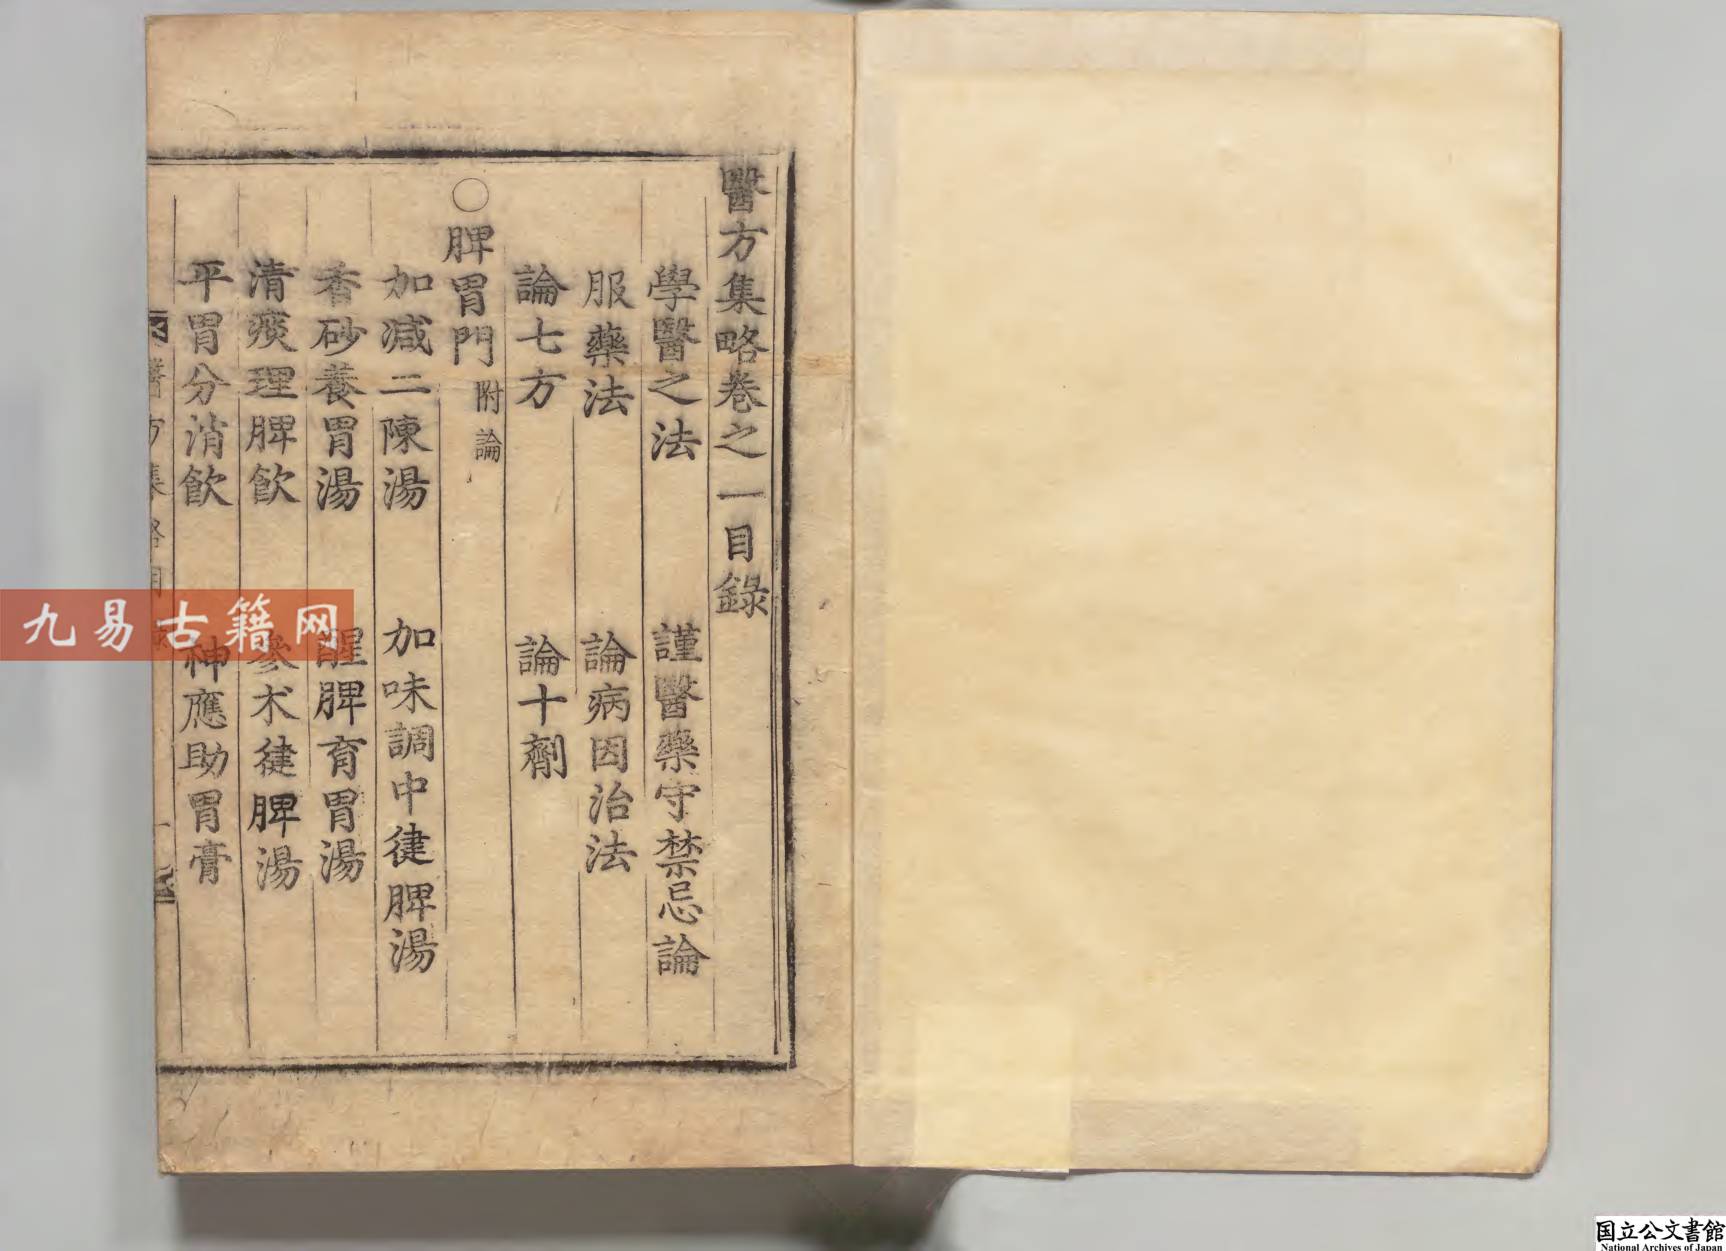 醫方集略卷之一目錄
學醫之法 謹醫藥守禁忌論
服藥法 論病因治法
論七方 論十劑
○脾胃門 附論
加減二陳湯 加味調中徤脾湯
香砂養胃湯 醒脾育胃湯
清痰理脾飲 參朮徤脾湯
平胃分消飲 神應助胃膏
九易古籍网
国立公文書館
National Archives of Japan